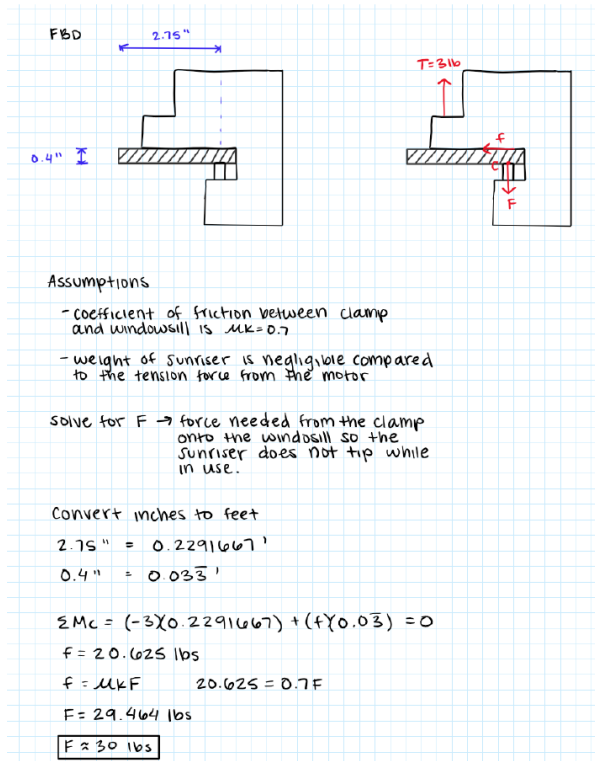 FBD
2.75"
T=3lb
0.4"
f
C
F
Assumptions
- coefficient of friction between clamp
and windowsill is μk=0.7
- weight of sunriser is negligible compared
to the tension force from the motor
solve for F → force needed from the clamp
onto the windosill so the
sunriser does not tip while
in use.
Convert inches to feet
2.75" = 0.2291667'
0.4" = 0.033̅'
ΣMc = (-3)(0.2291667) + (f)(0.03̅) = 0
f = 20.625 lbs
f = μkF 20.625 = 0.7F
F = 29.464 lbs
F ≈ 30 lbs